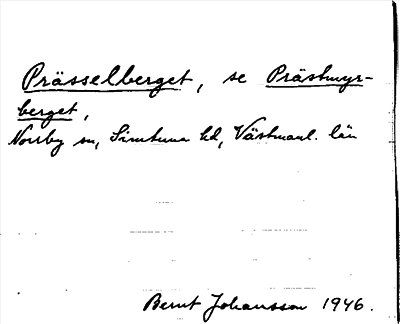 Prässelberget, se Prästmyr-
berget,
Norrby sn, Simtuna hd, Västmanl. län
Bernt Johansson 1946.